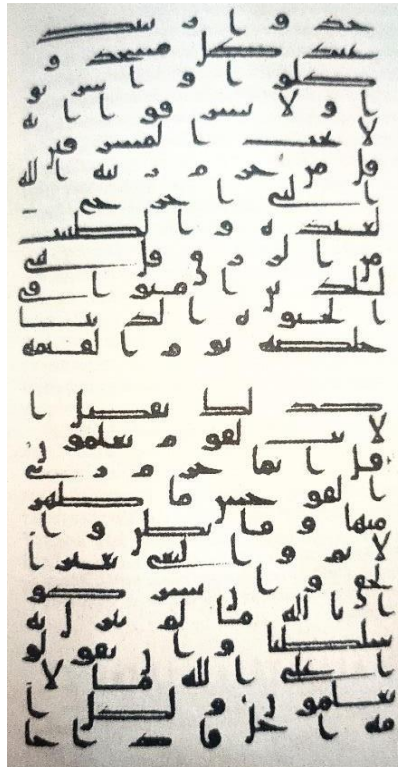 خذوا زينتكم
عند كل مسجد و
كلوا واشربو
ا ولا تسرفوا انه
لا يحب المسرفين
قل من حرم زينة الله
التي اخرج
لعباده والطيبت
من الرزق قل هي
للذين امنوا في
الحيوة الدنيا
خلصة يوم القيمة
كذلك نفصل ا
لايت لقوم يعلمون
قل انما حرم ربي
الفوحش ما ظهر
منها وما بطن وا
لاثم والبغي بغير ا
لحق وان تشركو
ا بالله ما لم ينزل به
سلطنا وان تقولو
ا على الله ما لا
تعلمون ولكل ا
مة اجل فاذا جا